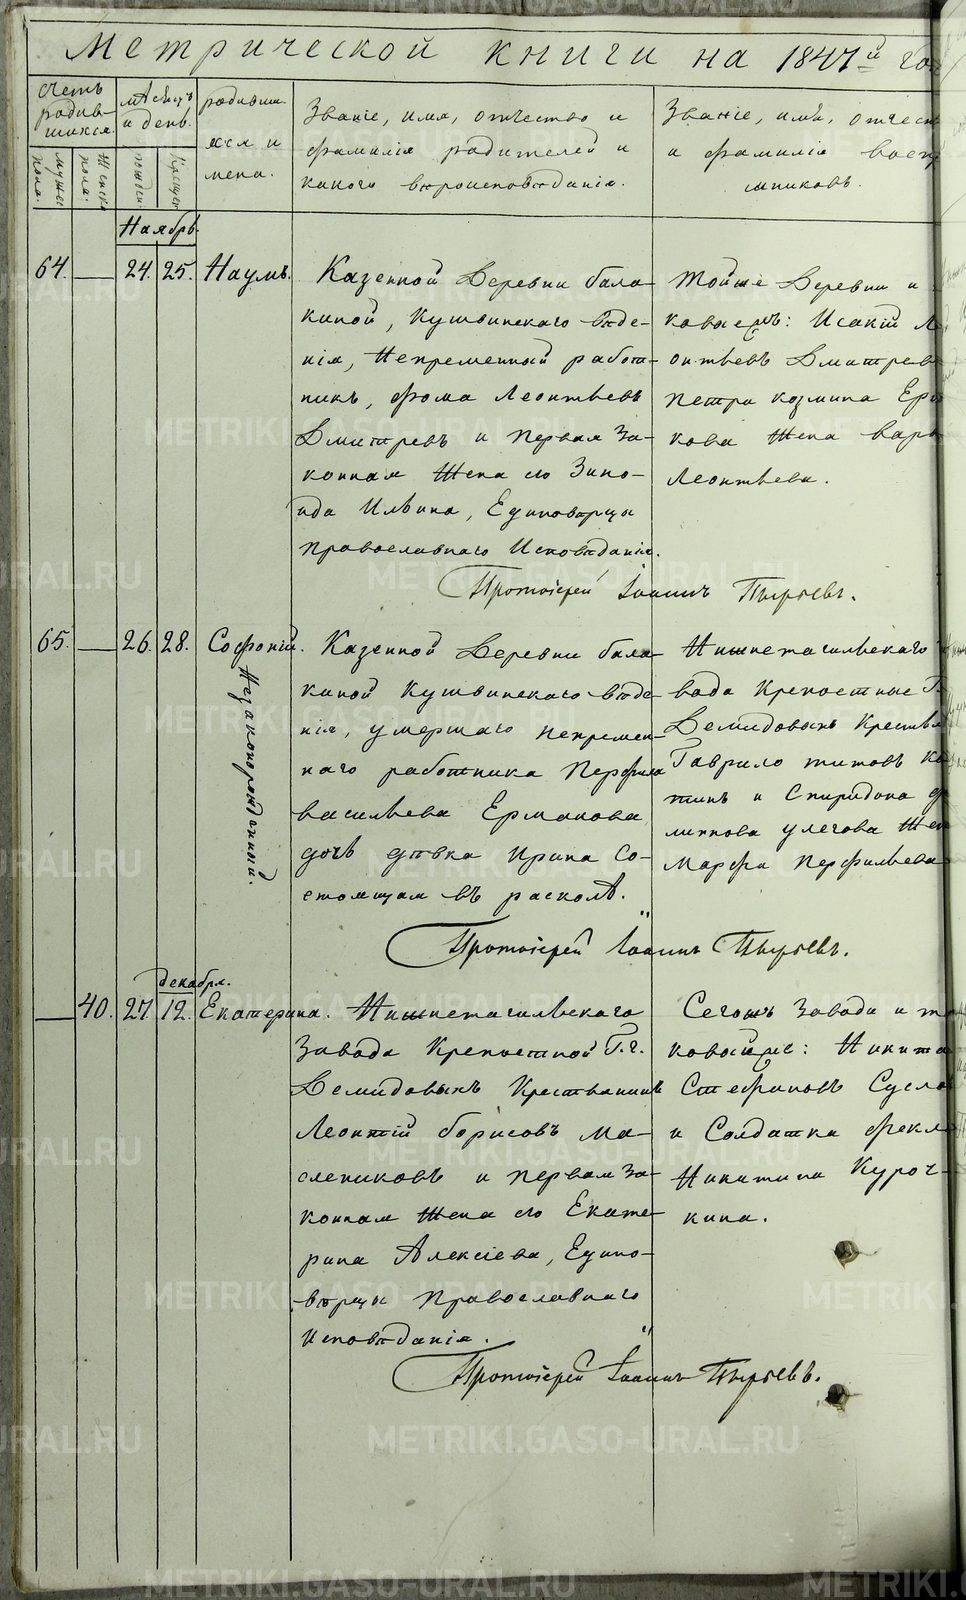 Метрической книги на 1847й го
Счетъ родив-шихся.
Мѣсяцъ и день.
родивши-хся имена.
Званіе, имя, отчество и фамилія родителей и какого вѣроисповѣданія.
Званіе, имя, отчест и фамилія восп шниковъ.
Мужес пола.
Женска пола.
рожден.
Крещен.
Ноябрь.
64. — 24. 25. Наумъ.
Казенной Деревни бала-
киной, Кушвинскаго вѣде-
нія, Непременный работ-
никъ, фома Леонтьевъ
Дмитревъ и первая за-
конная Жена его Зино-
ида Ильина, Единоверцы
православнаго Исповѣданія.
Тойже Деревни и
коваеяжъ: Исакій Ле
онтьевъ Дмитрев
петра козмина Ер
кова Жена варв
Леонтьева.
Протоіерей Іоаннъ Пырьевъ.
65. — 26. 28. Софроній.
Незаконорожденный.
Казенной Деревни бала-
киной Кушвинскаго вѣде-
нія, умершаго непремен-
наго работника Перфила
васильева Ермакова
дочь дѣвка Ирина Со-
стоящая въ расколѣ.
Нижнетагильскаго
вода Крепостные Г.
Демидовыхъ Крестья
Гаврило титовъ ко
тинъ и Спиридона ф
липпова улегова Жен
Марфа перфильева
Протоіерей Іоаннъ Пырьевъ.
декабря.
— 40. 27. 12. Екатерина.
Нижнетагильскаго
Завода Крепостной Г.г.
Демидовыхъ Крестьянинъ
Леонтій борисовъ Ма-
слениковъ и первая за-
конная Жена его Екате-
рина Алексіева, Едино-
вѣрцы православнаго
исповѣданія.
Сегожъ Завода и т
ковойже: Никита
Стефановъ Сусло
и Солдатка фекл
Никитина Куроч-
кина.
Протоіерей Іоаннъ Пырьевъ.
METRIKI.GASO-URAL.RU